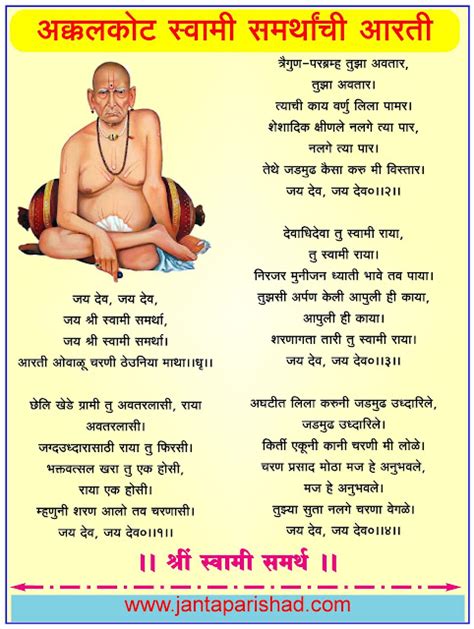 अक्कलकोट स्वामी समर्थांची आरती
जय देव, जय देव,
जय श्री स्वामी समर्था,
जय श्री स्वामी समर्था।
आरती ओवाळू चरणी ठेउनिया माथा।।धृ।।
छेलि खेडे ग्रामी तु अवतरलासी, राया
अवतरलासी।
जगदउध्दारासाठी राया तु फिरसी।
भक्तवत्सल खरा तु एक होसी,
राया एक होसी।
म्हणुनी शरण आलो तव चरणासी।
जय देव, जय देव०।।१।।
त्रैगुण-परब्रम्ह तुझा अवतार,
तुझा अवतार।
त्याची काय वर्णु लिला पामर।
शेशादिक क्षीणले नलगे त्या पार,
नलगे त्या पार।
तेथे जडमुढ कैसा करु मी विस्तार।
जय देव, जय देव०।।२।।
देवाधिदेवा तु स्वामी राया,
तु स्वामी राया।
निरजर मुनीजन ध्याती भावे तव पाया।
तुझसी अर्पण केली आपुली ही काया,
आपुली ही काया।
शरणागता तारी तु स्वामी राया।
जय देव, जय देव०।।३।।
अघटीत लिला करुनी जडमुढ उध्दारिले,
जडमुढ उध्दारिले।
किर्ती एकूनी कानी चरणी मी लोळे।
चरण प्रसाद मोठा मज हे अनुभवले,
मज हे अनुभवले।
तुझ्या सुता नलगे चरणा वेगळे।
जय देव, जय देव०।।४।।
।। श्रीं स्वामी समर्थ ।।
www.jantaparishad.com